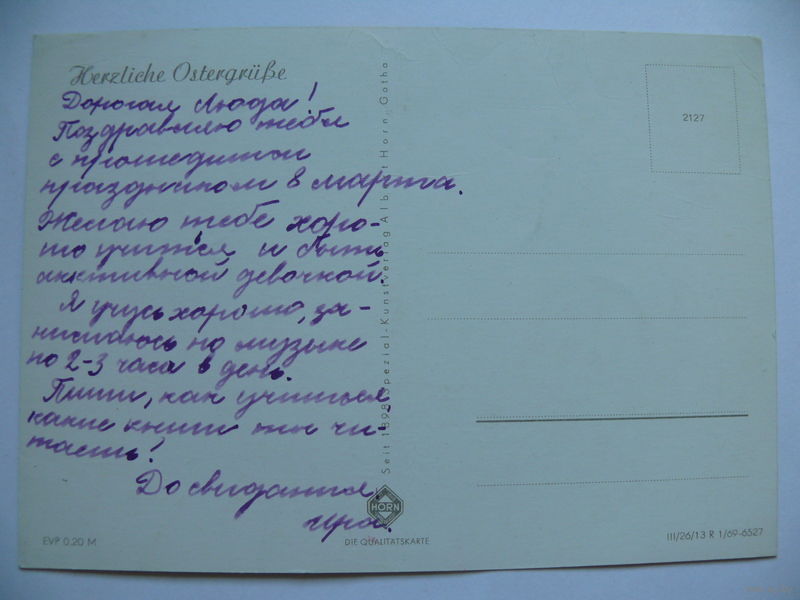 Herzliche Ostergrüße
Дорогая Люда!
Поздравляю тебя
с прошедшим
праздником 8 марта.
Желаю тебе хоро-
шо учиться и быть
активной девочкой.
Я учусь хорошо, за-
нимаюсь по музыке
по 2-3 часа в день.
Пиши, как учишься,
какие книги ты чи-
таешь!
До свидания
Ира.
Seit 1898 Spezial-Kunstverlag Albert Horn, Gotha
2127
HORN
EVP 0.20 M
DIE QUALITÄTSKARTE
III/26/13 R 1/69-6527